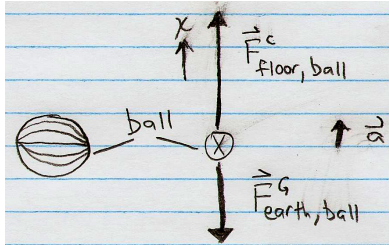 x
F^c floor, ball
ball
X
a
F^G earth, ball